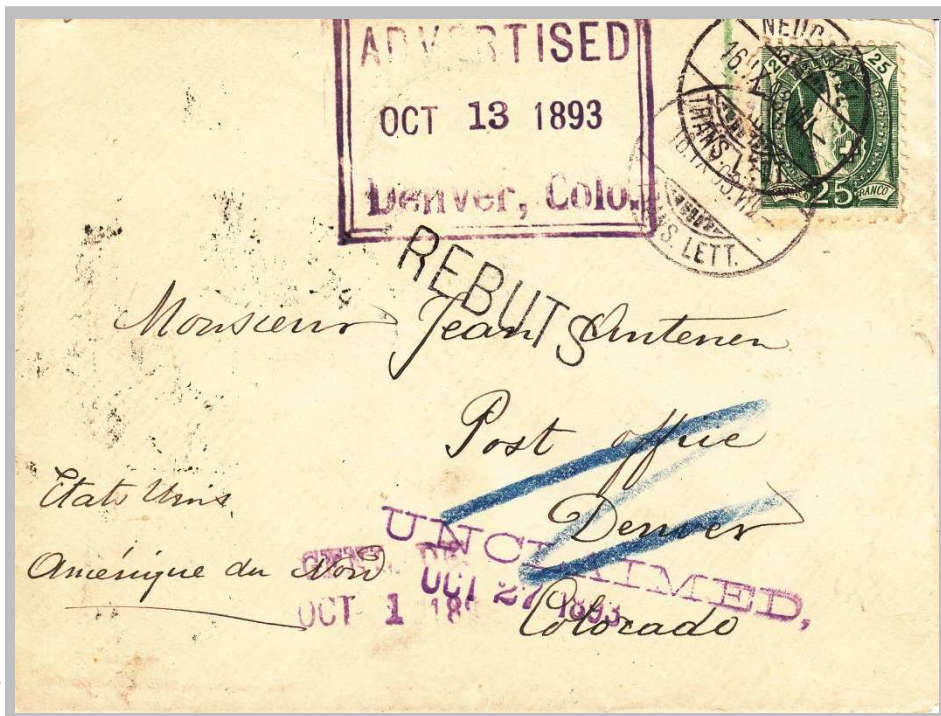 ADVERTISED
OCT 13 1893
Denver, Colo.
TRANS. LETT.
25
25
FRANCO
REBUTS
Monsieur Jean Antenen
Post office
Denver
Colorado
Etats Unis
Amérique du Nord
UNCLAIMED,
OCT 27 1893
OCT 1